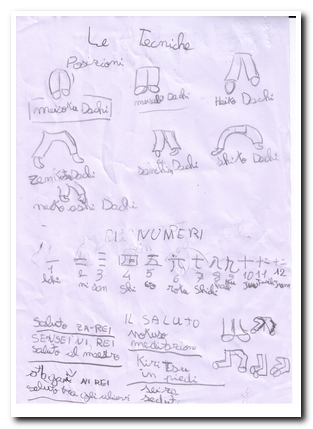 Le Tecniche
Posizioni
musubi Dachi
Heiko Dachi
Zenkutsu Dachi
Shiko Dachi
neko ashi Dachi
I NUMERI
一 二 三 四 五 六 七 八 九 十 十一 十二
1 2 3 4 5 6 7 8 9 10 11 12
ichi ni san shi go roku shichi
IL SALUTO
Saluto ZA-REI
SENSEI NI REI
saluto al maestro
NI REI
saluto tra gli allievi
mokuso
meditazione
Kiritsu
in piedi
seiza
seduti